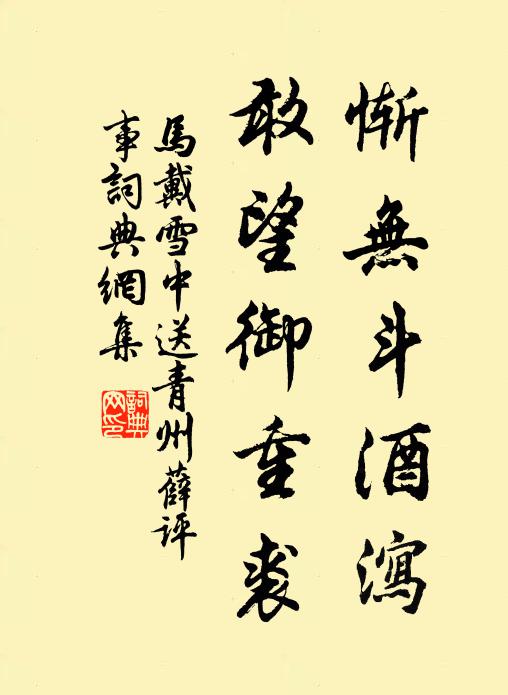 慚無斗酒瀉
敢望御重裘
馬戴雪中送青州薛評
事詞典網集
詞典
网印